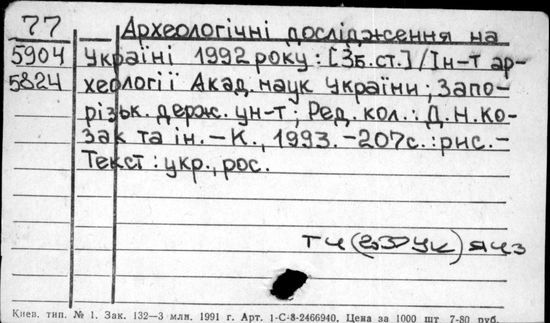 77
Археологічні дослідження на
5904 Україні 1992 року : [Зб.ст.] / Ін-т ар-
5824 хеології Акад. наук України ; Запо-
різьк. держ. ун-т ; Ред. кол.: Д.Н.Ко-
зак та ін. – К., 1993. – 207с. : рис. –
Текст : укр., рос.
ТЧ ЯЧЗ
Киев. тип. № 1. Зак. 132—3 млн. 1991 г. Арт. 1-С-8-2466940. Цена за 1000 шт 7-80 руб.